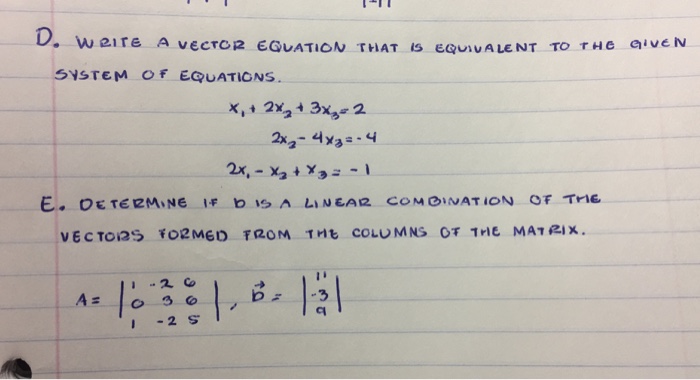 D. WRITE A VECTOR EQUATION THAT IS EQUIVALENT TO THE GIVEN
SYSTEM OF EQUATIONS.
x₁ + 2x₂ + 3x₃ = 2
2x₂ - 4x₃ = -4
2x₁ - x₂ + x₃ = -1
E. DETERMINE IF b IS A LINEAR COMBINATION OF THE
VECTORS FORMED FROM THE COLUMNS OF THE MATRIX.
1 -2 6 11
A = | 0 3 6 |, b⃗ = | -3 |
1 -2 5 9